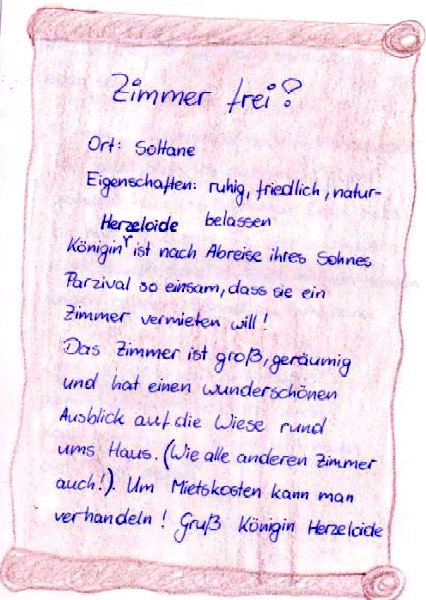 Zimmer frei?
Ort: Soltane
Eigenschaften: ruhig, friedlich, natur-
belassen
Königin Herzeloide ist nach Abreise ihres Sohnes
Parzival so einsam, dass sie ein
Zimmer vermieten will!
Das Zimmer ist groß, geräumig
und hat einen wunderschönen
Ausblick auf die Wiese rund
ums Haus. (Wie alle anderen Zimmer
auch!). Um Mietskosten kann man
verhandeln! Gruß Königin Herzeloide